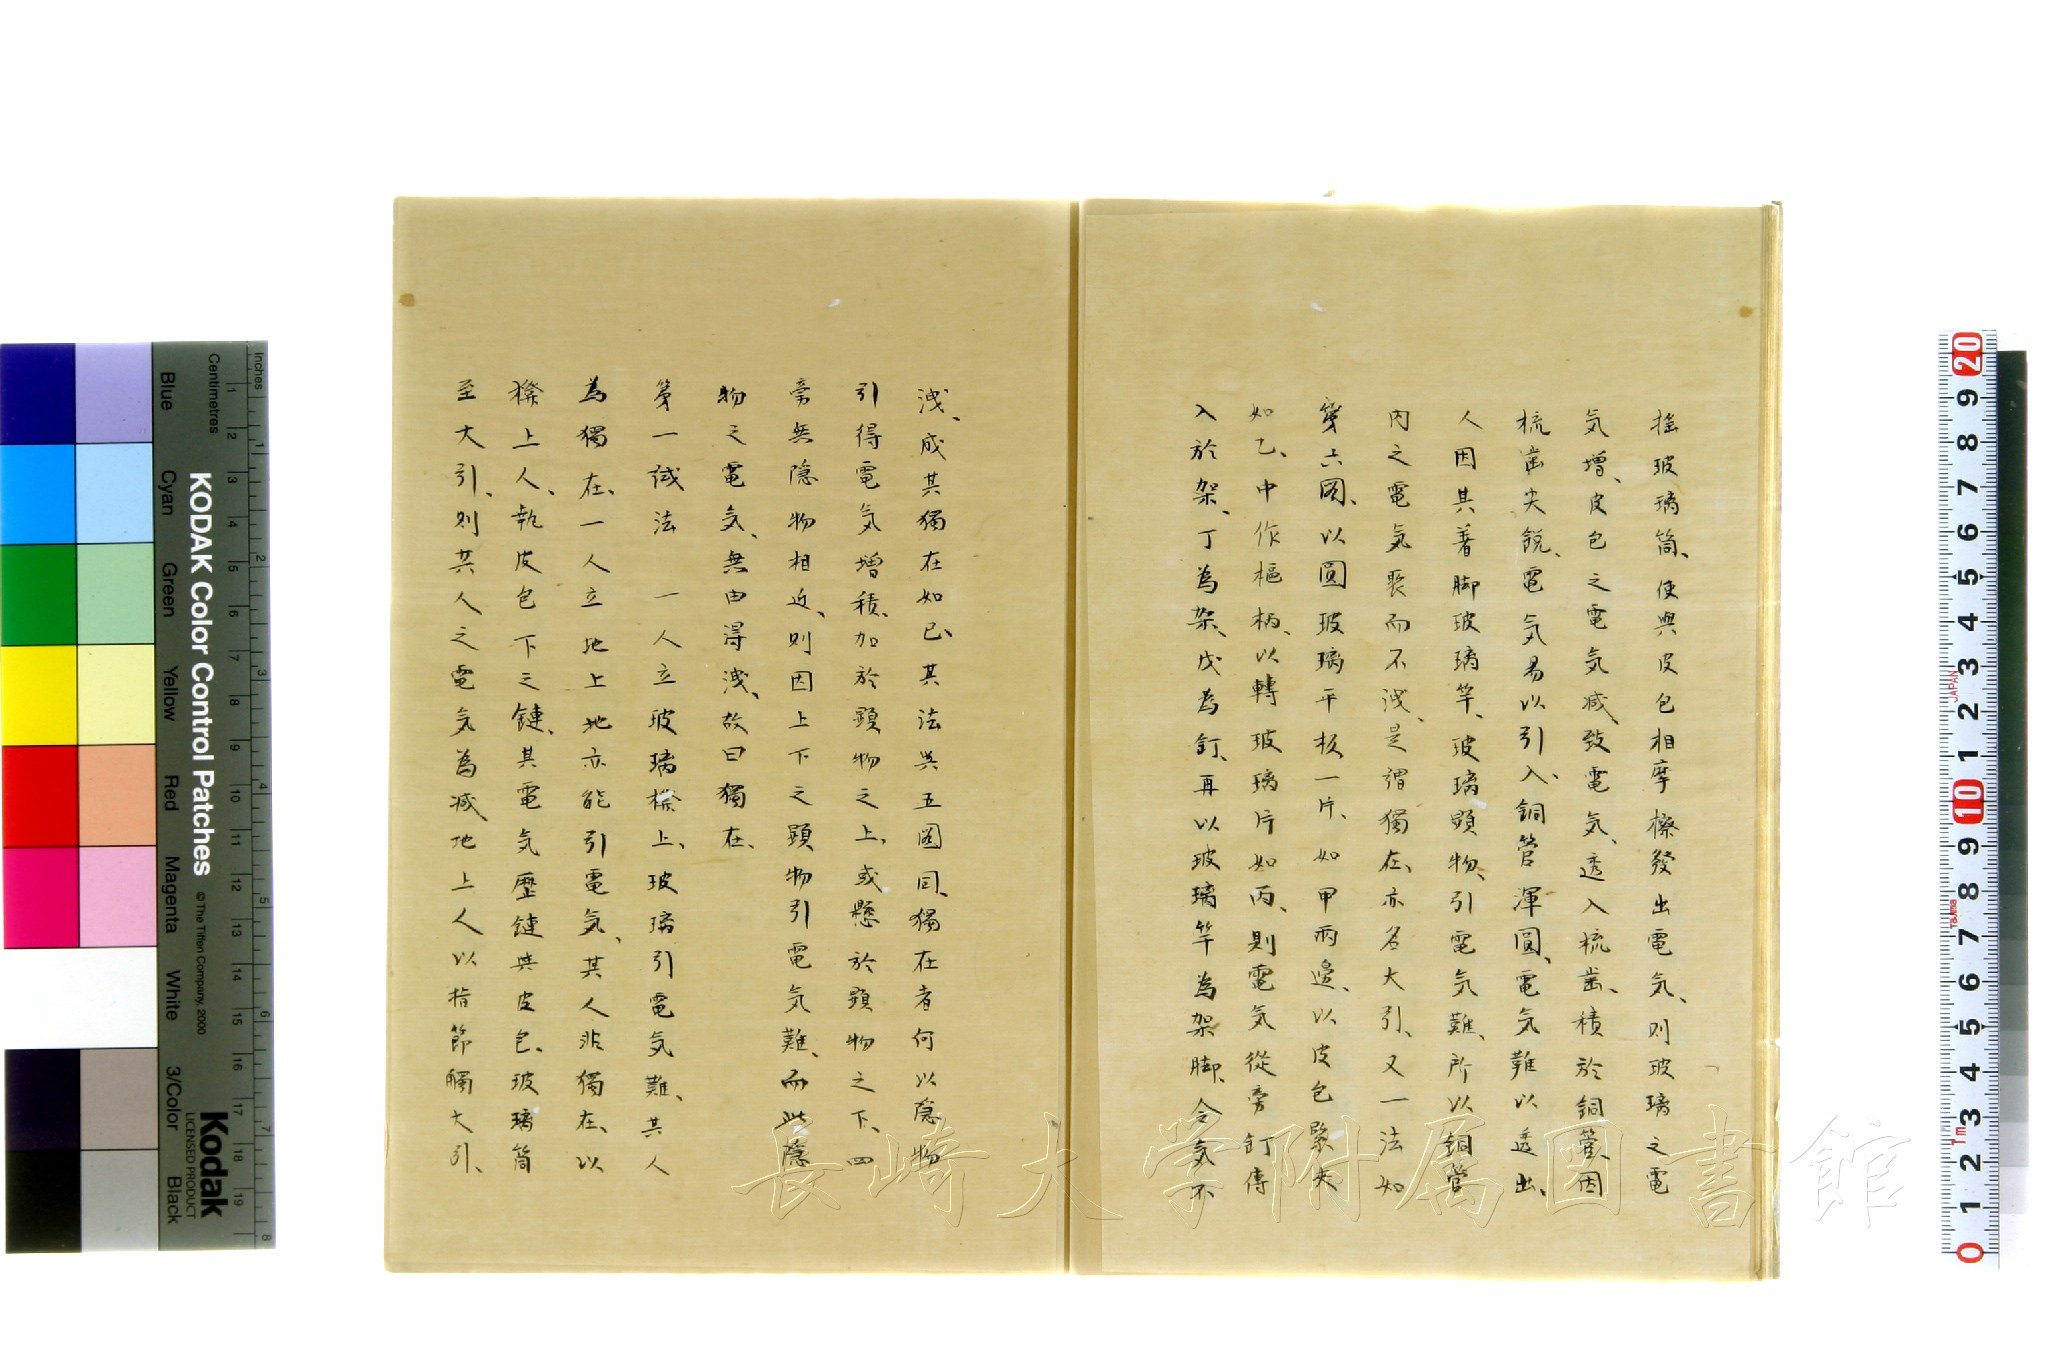 搖玻璃筒、使與皮包相摩擦發出電気、則玻璃之電
気増、皮包之電気減、致電気、透入梳歯、積於銅管、因
梳歯尖鋭、電気易以引入、銅管渾圓、電気難以透出、
人因其著脚玻璃竿、玻璃顕物、引電気難、所以銅管
内之電気聚而不洩、是謂獨在、亦名大引、又一法如
第六圖、以圓玻璃平板一片、如甲両邊、以皮包緊夾
如乙、中作樞柄、以轉玻璃片如丙、則電気從旁釘傳
入於架、丁為架、戊為釘、再以玻璃竿為架脚、令気不
洩、成其獨在如已、其法與五圖同、獨在者何以隠物
引得電気増積、加於顕物之上、或懸於顕物之下、四
旁無隠物相近、則因上下之顕物引電気難、而此隠
物之電気、無由得洩、故曰獨在、
第一試法 一人立玻璃櫈上、玻璃引電気難、其人
為獨在、一人立地上地亦能引電気、其人非獨在、以
櫈上人、執皮包下之鏈、其電気歴鏈與皮包、玻璃筒
至大引、則其人之電気為減地上人以指節觸大引、
長崎大学附属図書館
KODAK Color Control Patches
© The Tiffen Company, 2000
Kodak
LICENSED PRODUCT
Inches
Centimetres
Blue
Cyan
Green
Yellow
Red
Magenta
White
3/Color
Black
1 2 3 4 5 6 7 8 9 10 11 12 13 14 15 16 17 18 19
1 2 3 4 5 6 7 8
20 9 8 7 6 5 4 3 2 1 10 9 8 7 6 5 4 3 2 1 0
JAPAN